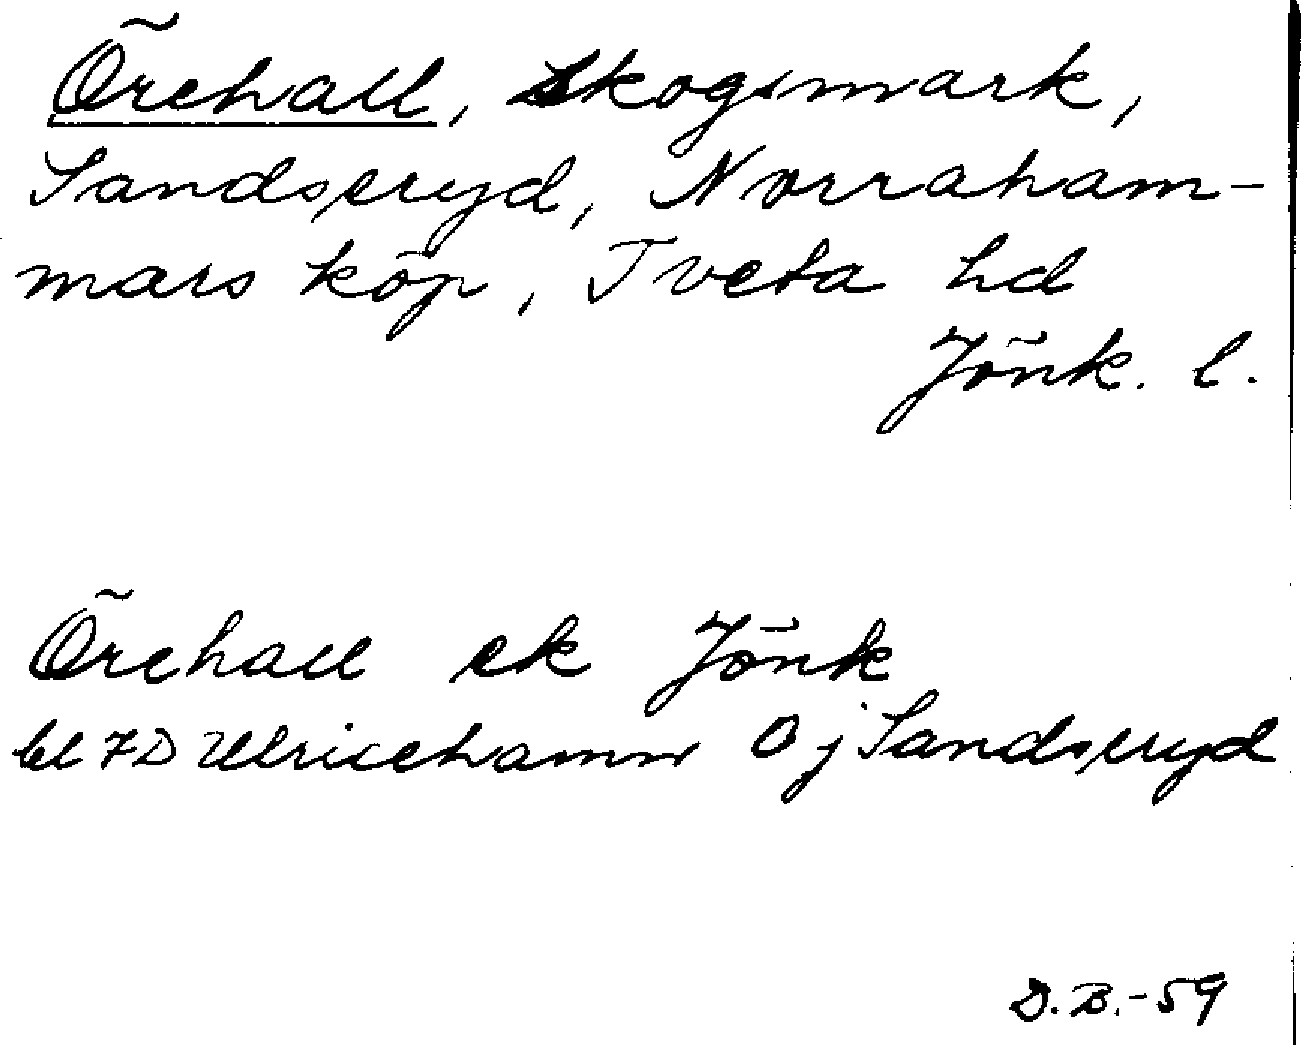 Örehall, Skogsmark,
Sandseryd, Norraham-
mars köp, Tveta hd
Jönk. l.
Örehall ek Jönk
bl 7D Ulricehamn Oj Sandseryd
D.B.-59